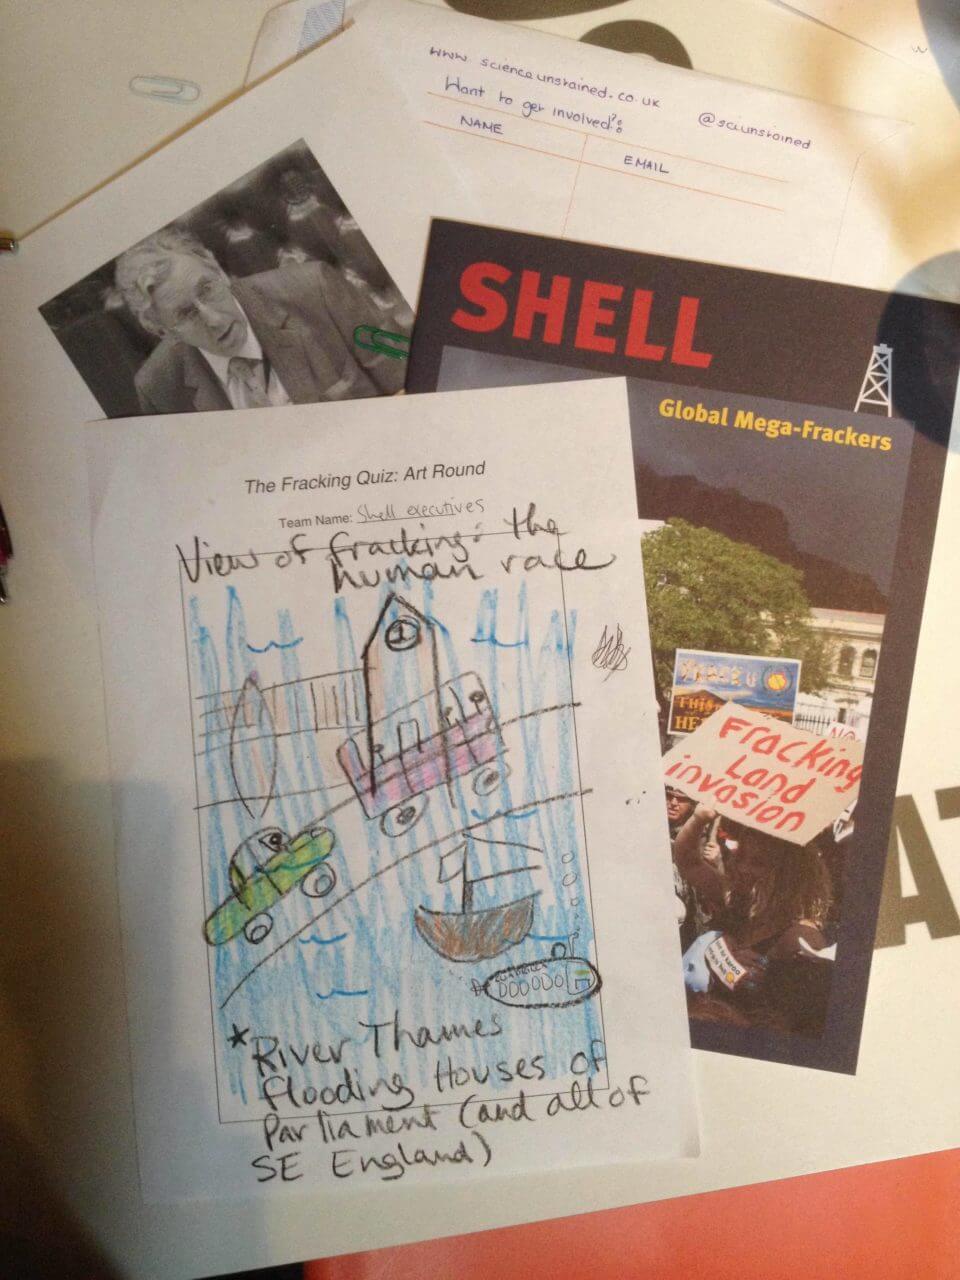 www.scienceunstained.co.uk
@sciunstained
Want to get involved?:
NAME
EMAIL
SHELL
Global Mega-Frackers
The Fracking Quiz: Art Round
Team Name: Shell executives
View of fracking: the
human race
Fracking
Land
invasion
*River Thames
flooding Houses of
Parliament (and all of
SE England)